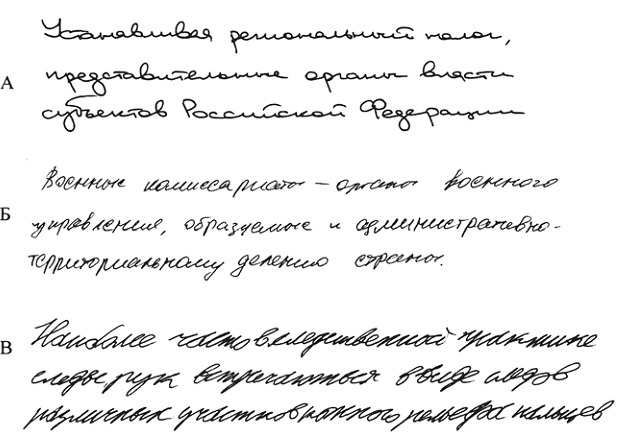 Устанавливая региональный налог,
А
представительные органы власти
субъектов Российской Федерации
Военные комиссариаты – органы военного
Б
управления, образуемые и административно-
территориальному делению страны.
В
Наиболее часто в следственной практике
следы рук встречаются в виде следов
различных участков кожного рельефа пальцев